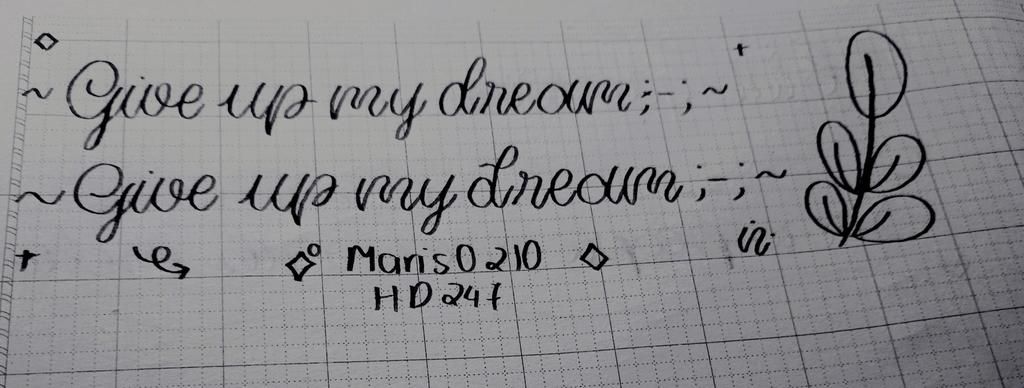 ~ Give up my dream ;-; ~
~ Give up my dream ;-; ~
in
Maris0210
HD247